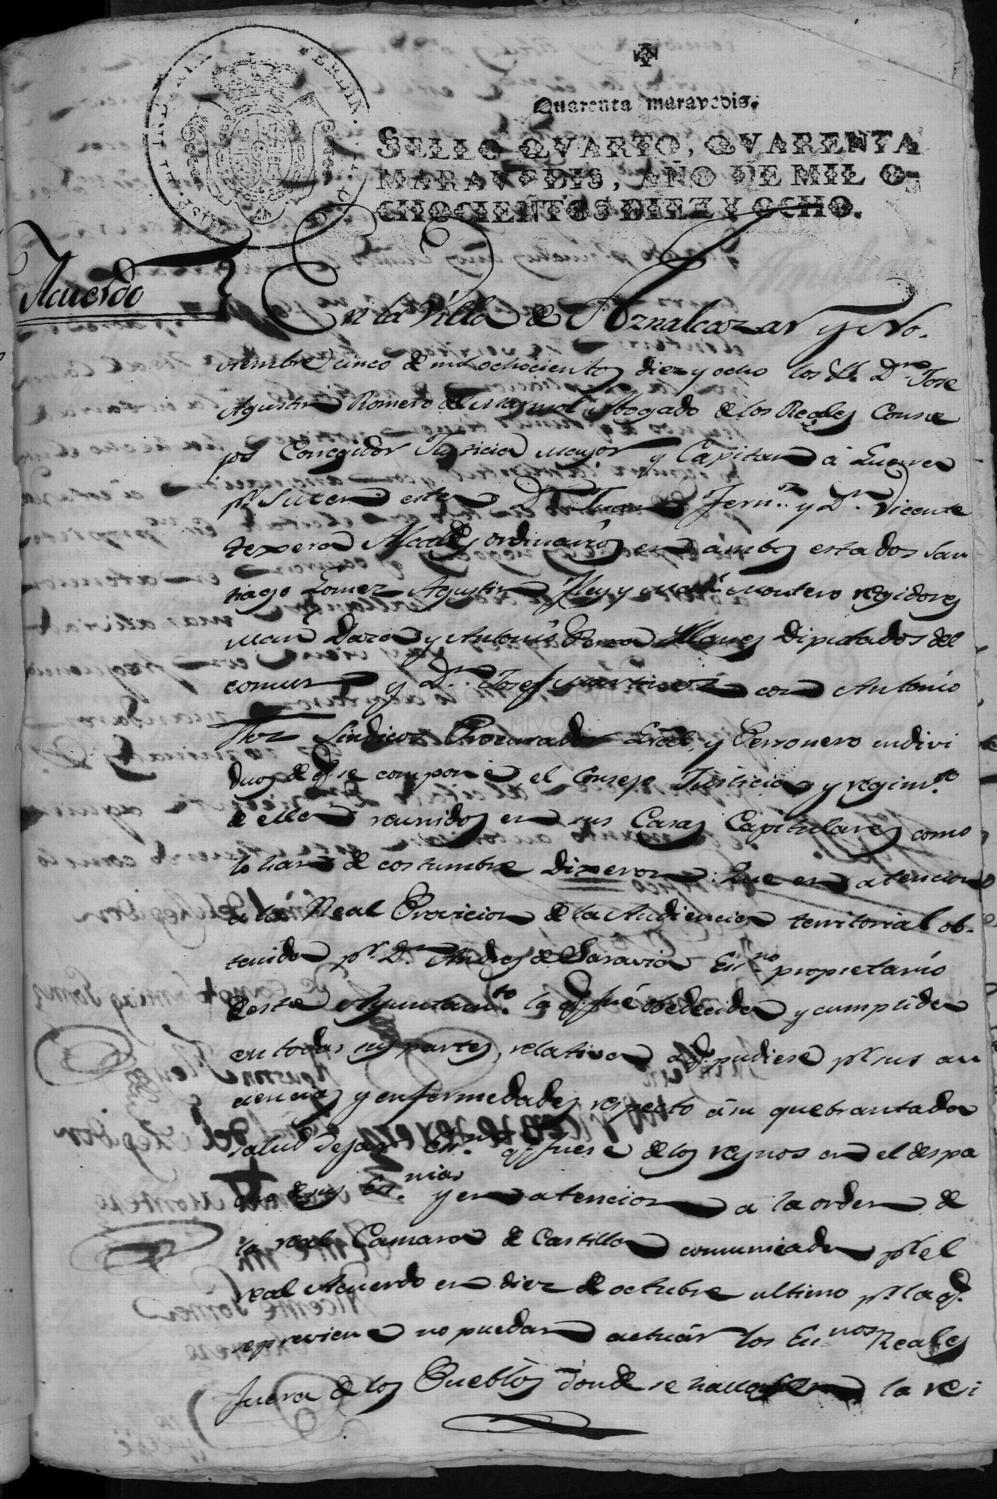 Quarenta maravedis.
SELLO QVARTO, QVARENTA
MARAVEDIS, AÑO DE MIL O-
CHOCIENTOS DIEZ Y OCHO.
Acuerdo
En la Villa de Aznalcazar y No-
viembre cinco de mil ochocientos diez y ocho los SS. Dn. Jose
Agustin Romero del Marmol Abogado de los Reales Conse
jos Corregidor Justicia mayor y Capitan á Guerra
pr. S. M. en esta Dn. Juan Fernz. y Dn. Vicente
texero Alcaldes ordinarios en ambos estados San
tiago Gomez Agustin Rey y Montero regidores
y Antonio Diputados del
comun y Dn. Josef Martinez con Antonio
Flor Sindicos Procurador Gral. y Perzonero indivi
duos de qe. se compone el Consejo Justicia y regimto.
de ella reunidos en sus Casas Capitulares como
lo han de costumbre dixeron: Que en atencion
a la Real Provicion de la Audiencia territorial ob-
tenida pr. Dn. Andres de Saravia Esno. propietario
deste Ayuntamto. la qe. fué obedecida y cumplida
en todas sus partes, relativa a qe. pudiese pr. sus au
cencias y enfermedades respecto á su quebrantada
salud dejar Esno. qe. fuese de los reynos en el despa
cho de sus Esnias. y en atencion a la orden de
la real Camara de Castilla comunicada pr. el
real Acuerdo en diez de octubre ultimo pr. la qe.
se previene no puedan actuár los Esnos. Reales
fuera de los Pueblos donde se halla la resi